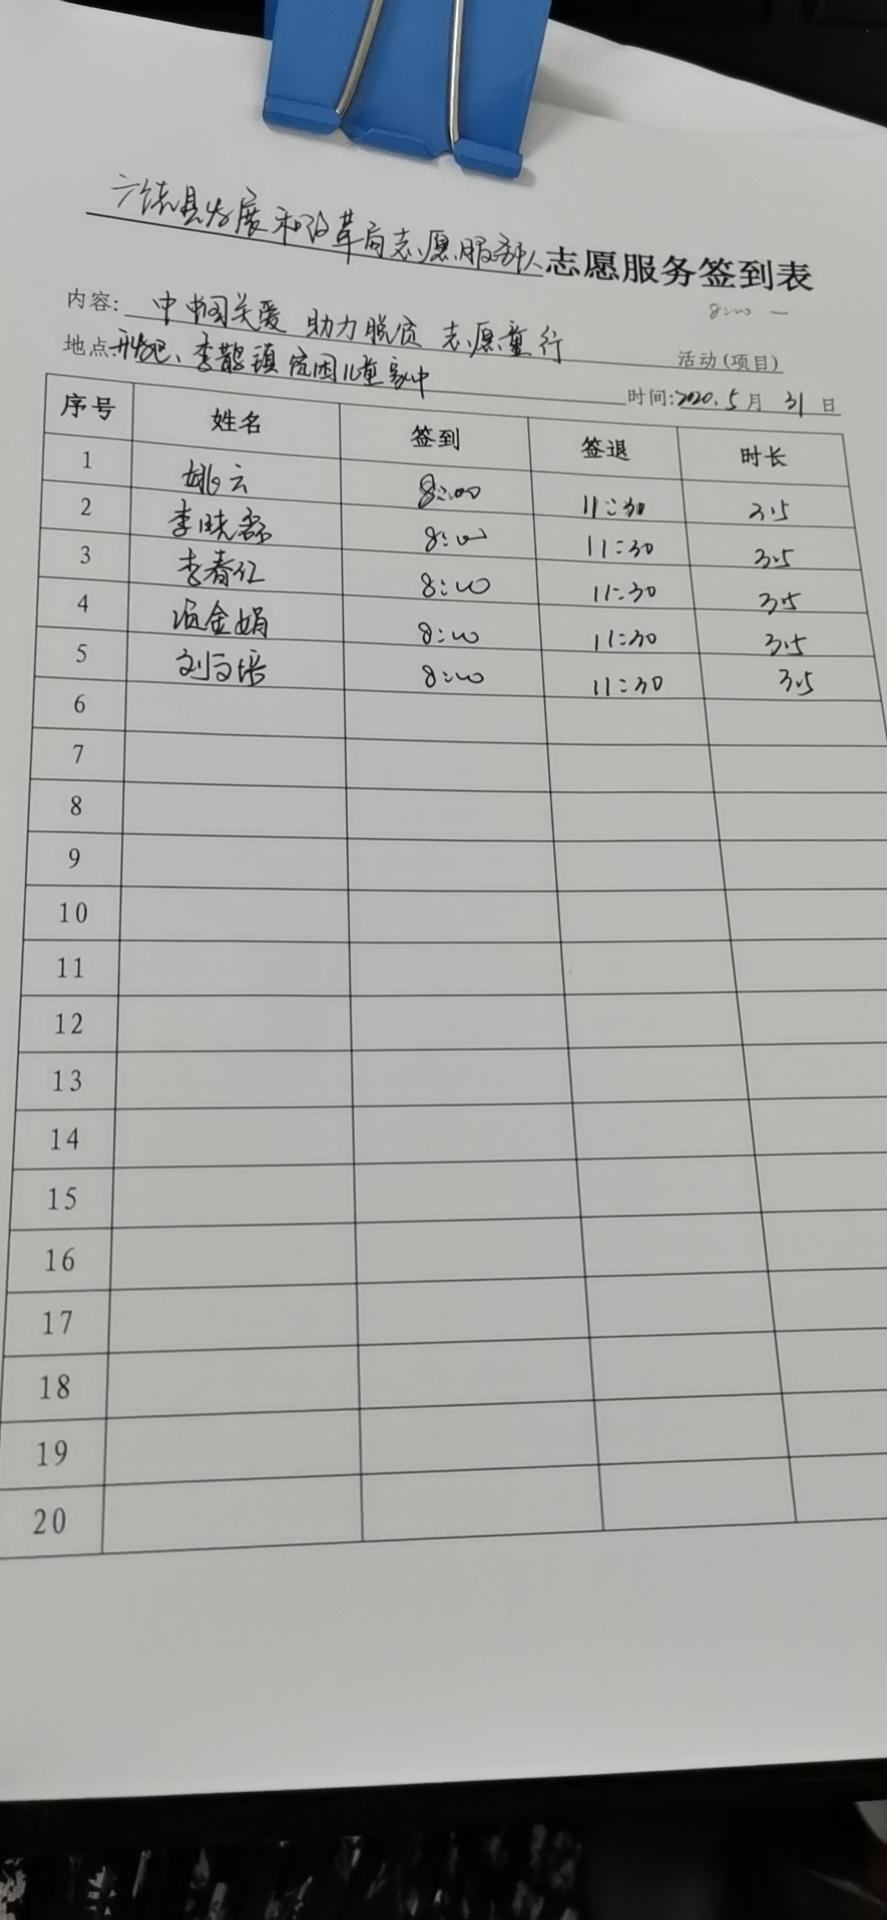 县发展和改革局志愿服务队志愿服务签到表
8:00 —
内容: 关爱 助力脱贫 志愿童行 活动(项目)
地点 、李 镇贫困儿童家中 时间:2020.5月31日
序号 姓名 签到 签退 时长
1 姚云 8:00 11:30 3.5
2 李晓磊 8:00 11:30 3.5
3 李春红 8:00 11:30 3.5
4 金娟 8:00 11:30 3.5
5 刘文培 8:00 11:30 3.5
6
7
8
9
10
11
12
13
14
15
16
17
18
19
20